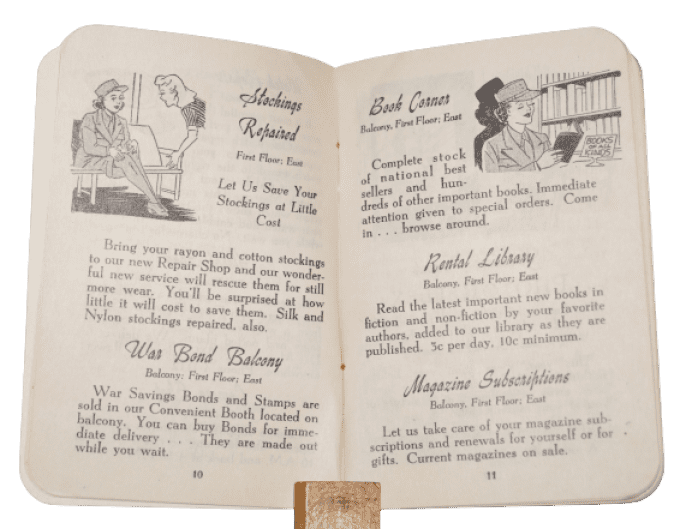 Stockings
Repaired
First Floor; East
Let Us Save Your
Stockings at Little
Cost
Bring your rayon and cotton stockings
to our new Repair Shop and our wonder-
ful new service will rescue them for still
more wear. You'll be surprised at how
little it will cost to save them. Silk and
Nylon stockings repaired, also.
War Bond Balcony
Balcony; First Floor; East
War Savings Bonds and Stamps are
sold in our Convenient Booth located on
balcony. You can buy Bonds for imme-
diate delivery . . . They are made out
while you wait.
10
Book Corner
Balcony, First Floor; East
BOOKS
OF ALL
KINDS
Complete stock
of national best
sellers and hun-
dreds of other important books. Immediate
attention given to special orders. Come
in . . . browse around.
Rental Library
Balcony, First Floor; East
Read the latest important new books in
fiction and non-fiction by your favorite
authors, added to our library as they are
published. 3c per day, 10c minimum.
Magazine Subscriptions
Balcony, First Floor; East
Let us take care of your magazine sub-
scriptions and renewals for yourself or for
gifts. Current magazines on sale.
11